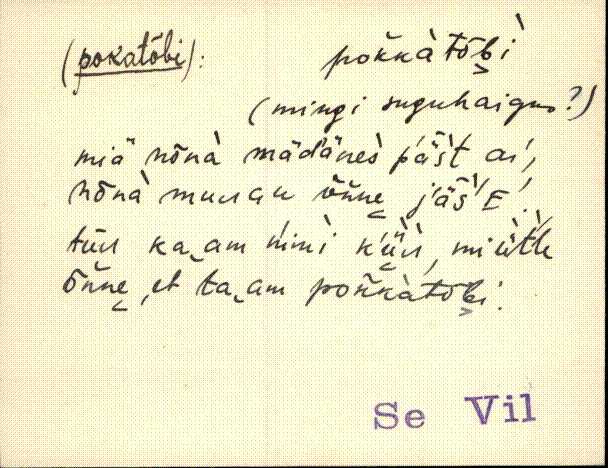 (pokatõbi): pokkàtõbì
(mingi suguhaigus?)
miä nõnà mädänes̀ p̀äšt ar,
nõnà muusau õnne jäš E.
tüü ka am nimi k'üüs, miütle
õnne, et ta am pokkàtõbi.
Se Vil